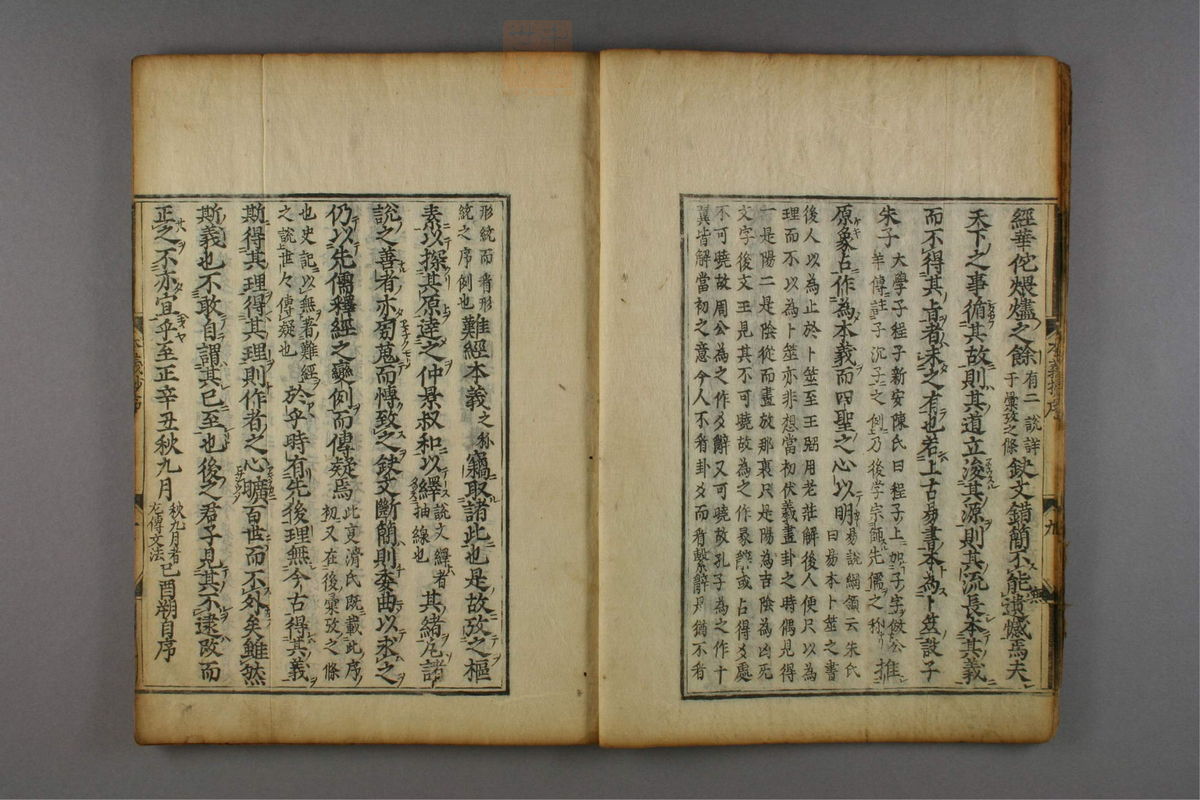 經華佗煨燼之餘有二說詳于彙攷之條缺文錯簡不能無遺憾焉夫
天下之事循其故則其道立浚其源則其流長本其義
而不得其旨者未之有也若上古易書本為卜筮設子
朱子大學子程子新安陳氏曰程子上加子字倣公羊傳註子沉子之例乃後学宗師先儒之称推
原象占作為本義而四聖之心以明易說綱領云朱氏曰易本卜筮之書
後人以為止於卜筮至王弼用老荘解後人便只以為
理而不以為卜筮亦非想當初伏羲畫卦之時偶見得
一是陽二是陰從而畫放那裏只是陽為吉陰為凶死
文字後文王見其不可曉故為之作彖繇或占得爻處
不可曉故周公為之作爻辭又可曉故孔子為之作十
翼皆解當初之意今人不看卦爻而看繫辭是猶不看
形統而看形
統之序例也難經本義之称竊取諸此也是故攷之樞
素以探其原達之仲景叔和以繹說文繹者抽線也其緒凢諸
說之善者亦旁蒐而博致之缺文斷簡則委曲以求之
仍以先儒釋經之變例而傳疑焉此夏濟氏既載此序初又在後彙攷之條
也史記以無著難經之說世々傳疑也於乎時有先後理無今古得其義
斯得其理得其理則作者之心曠百世而不外矣雖然
斯義也不敢自謂其已至也後之君子見其不逮改而
正之不亦宜乎至正辛丑秋九月秋九月者左傳文法己酉朔自序